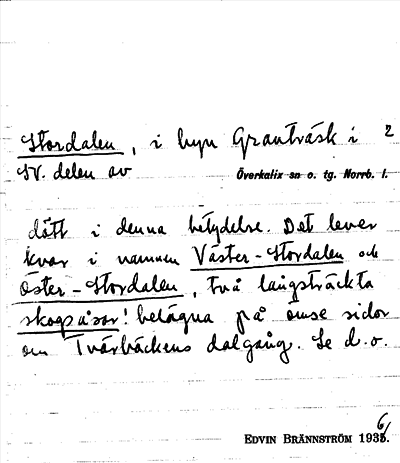 Stordalen, i byn Granträsk i 2
SV. delen av Överkalix sn o. tg. Norrb. l.
dött i denna betydelse. Det lever
kvar i namnen Väster-Stordalen och
Öster-Stordalen, två långsträckta
skogsåsar! belägna på ömse sidor
om Tvärbäckens dalgång. Se d.o.
EDVIN BRÄNNSTRÖM 1936/